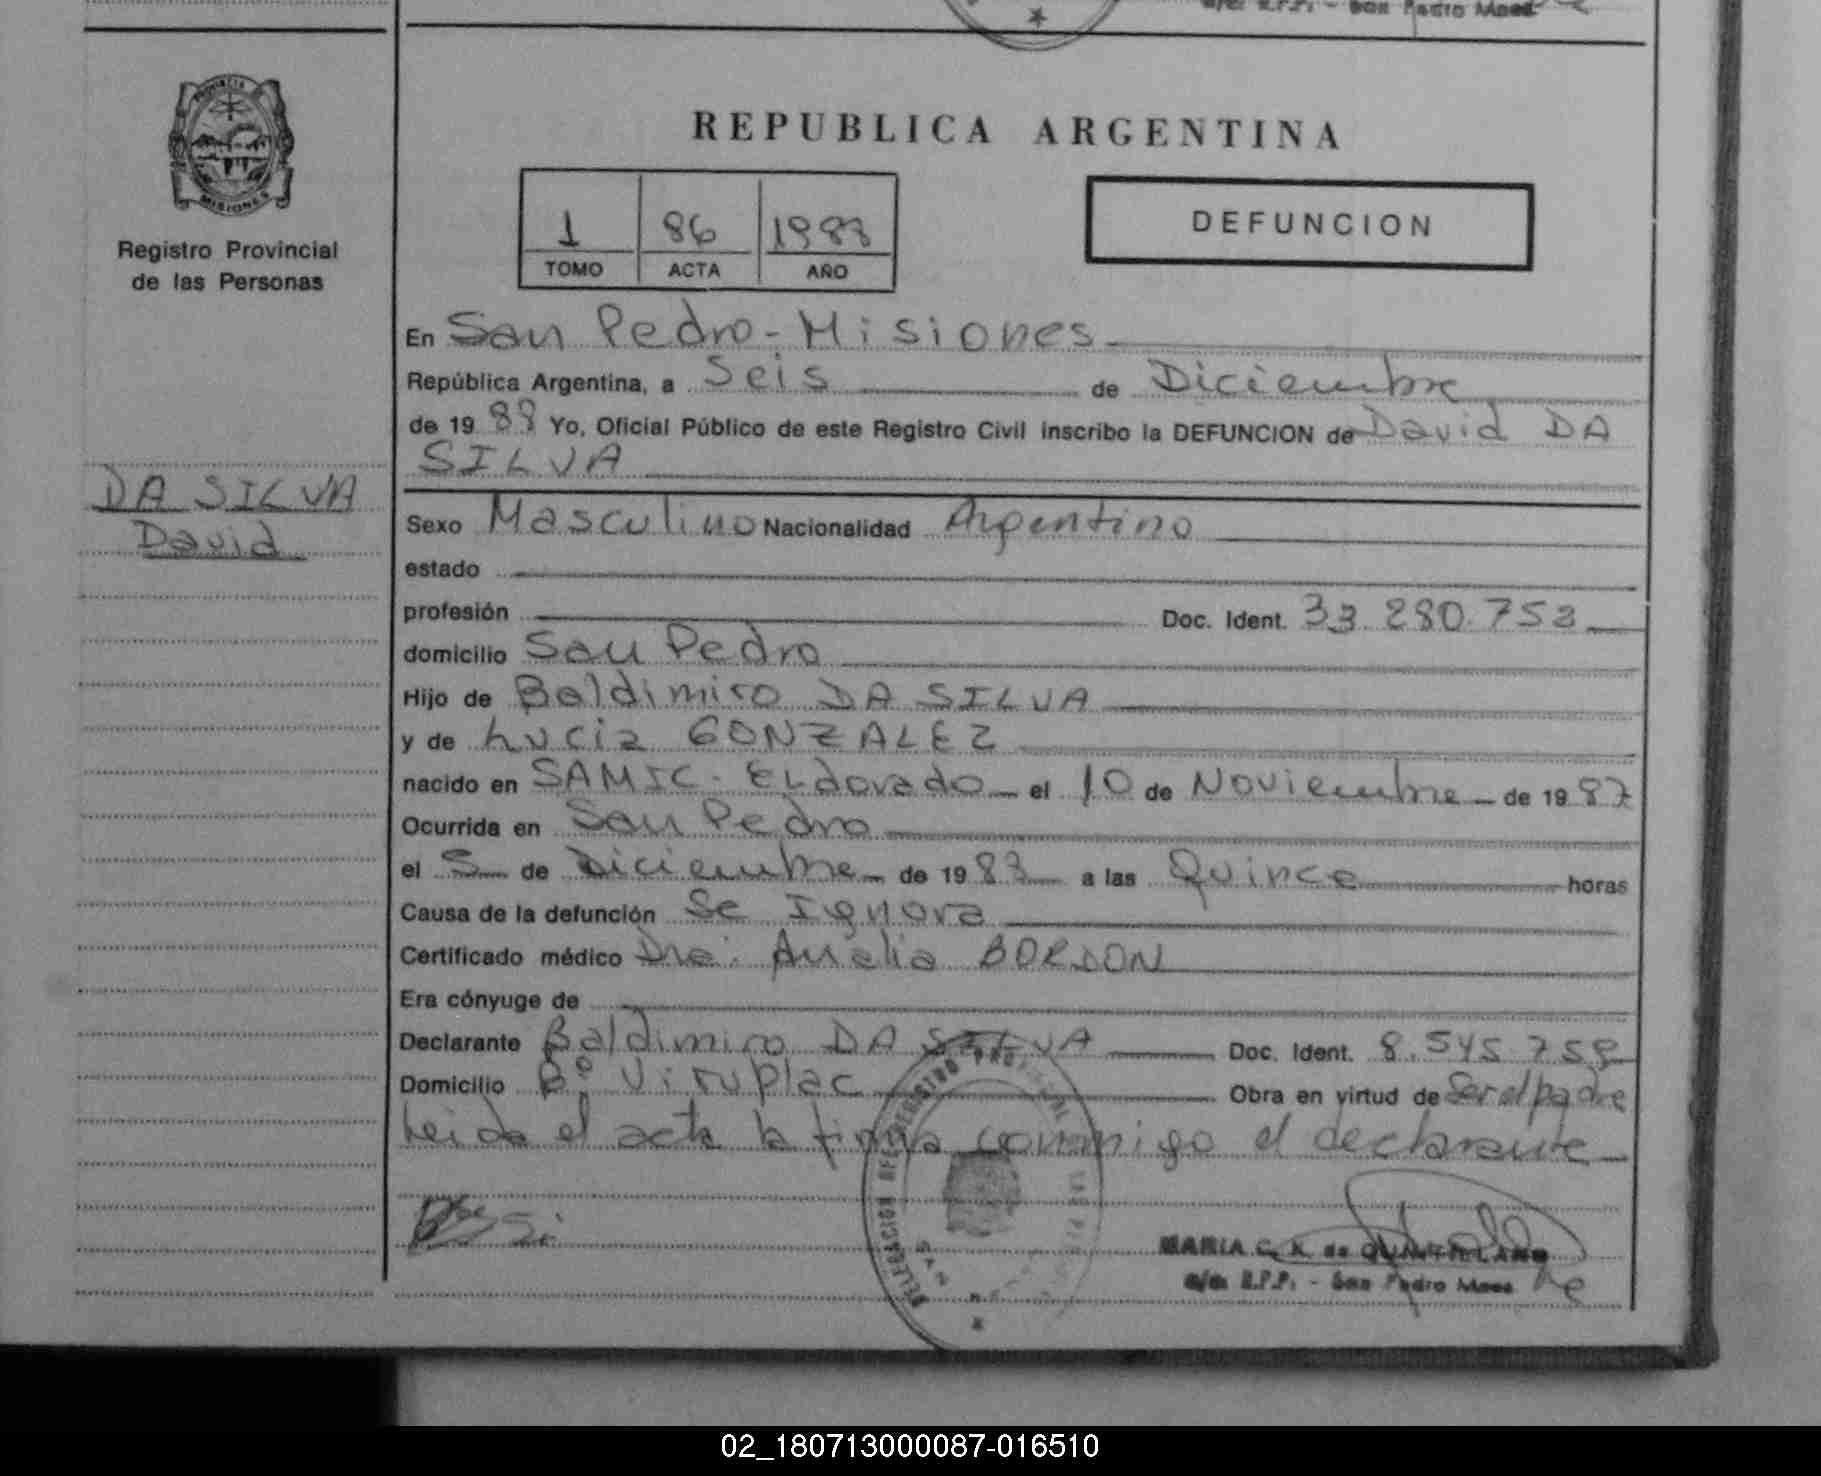 a/c. R.P.P. - San Pedro Mnes
PROVINCIA
MISIONES
Registro Provincial
de las Personas
DA SILVA
David
REPUBLICA ARGENTINA
1 86 1988
TOMO ACTA AÑO
DEFUNCION
En San Pedro - Misiones
República Argentina, a Seis de Diciembre
de 19 88 Yo, Oficial Público de este Registro Civil inscribo la DEFUNCION de David DA
SILVA
Sexo Masculino Nacionalidad Argentino
estado
profesión Doc. Ident. 33.280.753
domicilio San Pedro
Hijo de Baldimiro DA SILVA
y de Lucia GONZALEZ
nacido en SAMIC - Eldorado el 10 de Noviembre de 19 87
Ocurrida en San Pedro
el 5 de Diciembre de 19 88 a las Quince horas
Causa de la defunción Se Ignora
Certificado médico Dra. Analia BORDON
Era cónyuge de
Declarante Baldimiro DA SILVA Doc. Ident. 8.545.758
Domicilio Bº Viruplac Obra en virtud de Ser el padre
Leida el acta la firma conmigo el declarante
MARIA C. K. de QUINTILLANO
a/c. R.P.P. - San Pedro Mnes
02_180713000087-016510